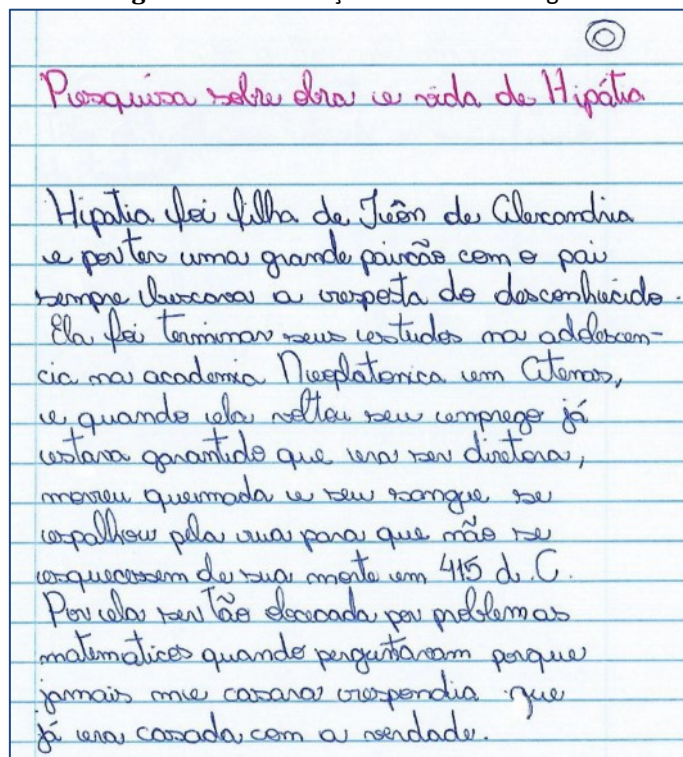 Pesquisa sobre obra e vida de Hipátia
Hipatia foi filha de Teôn de Alexandria
e por ter uma grande paixão com o pai
sempre buscava a resposta do desconhecido.
Ela foi terminar seus estudos na adolescen-
cia na academia Neoplatonica em Atenas,
e quando ela voltou seu emprego já
estava garantido que era ser diretora,
morreu queimada e seu sangue se
espalhou pela rua para que não se
esquecessem de sua morte em 415 d.C.
Por ela ser tão obcecada por problemas
matematicos quando perguntavam porque
jamais me casara respondia que
já era casada com a verdade.